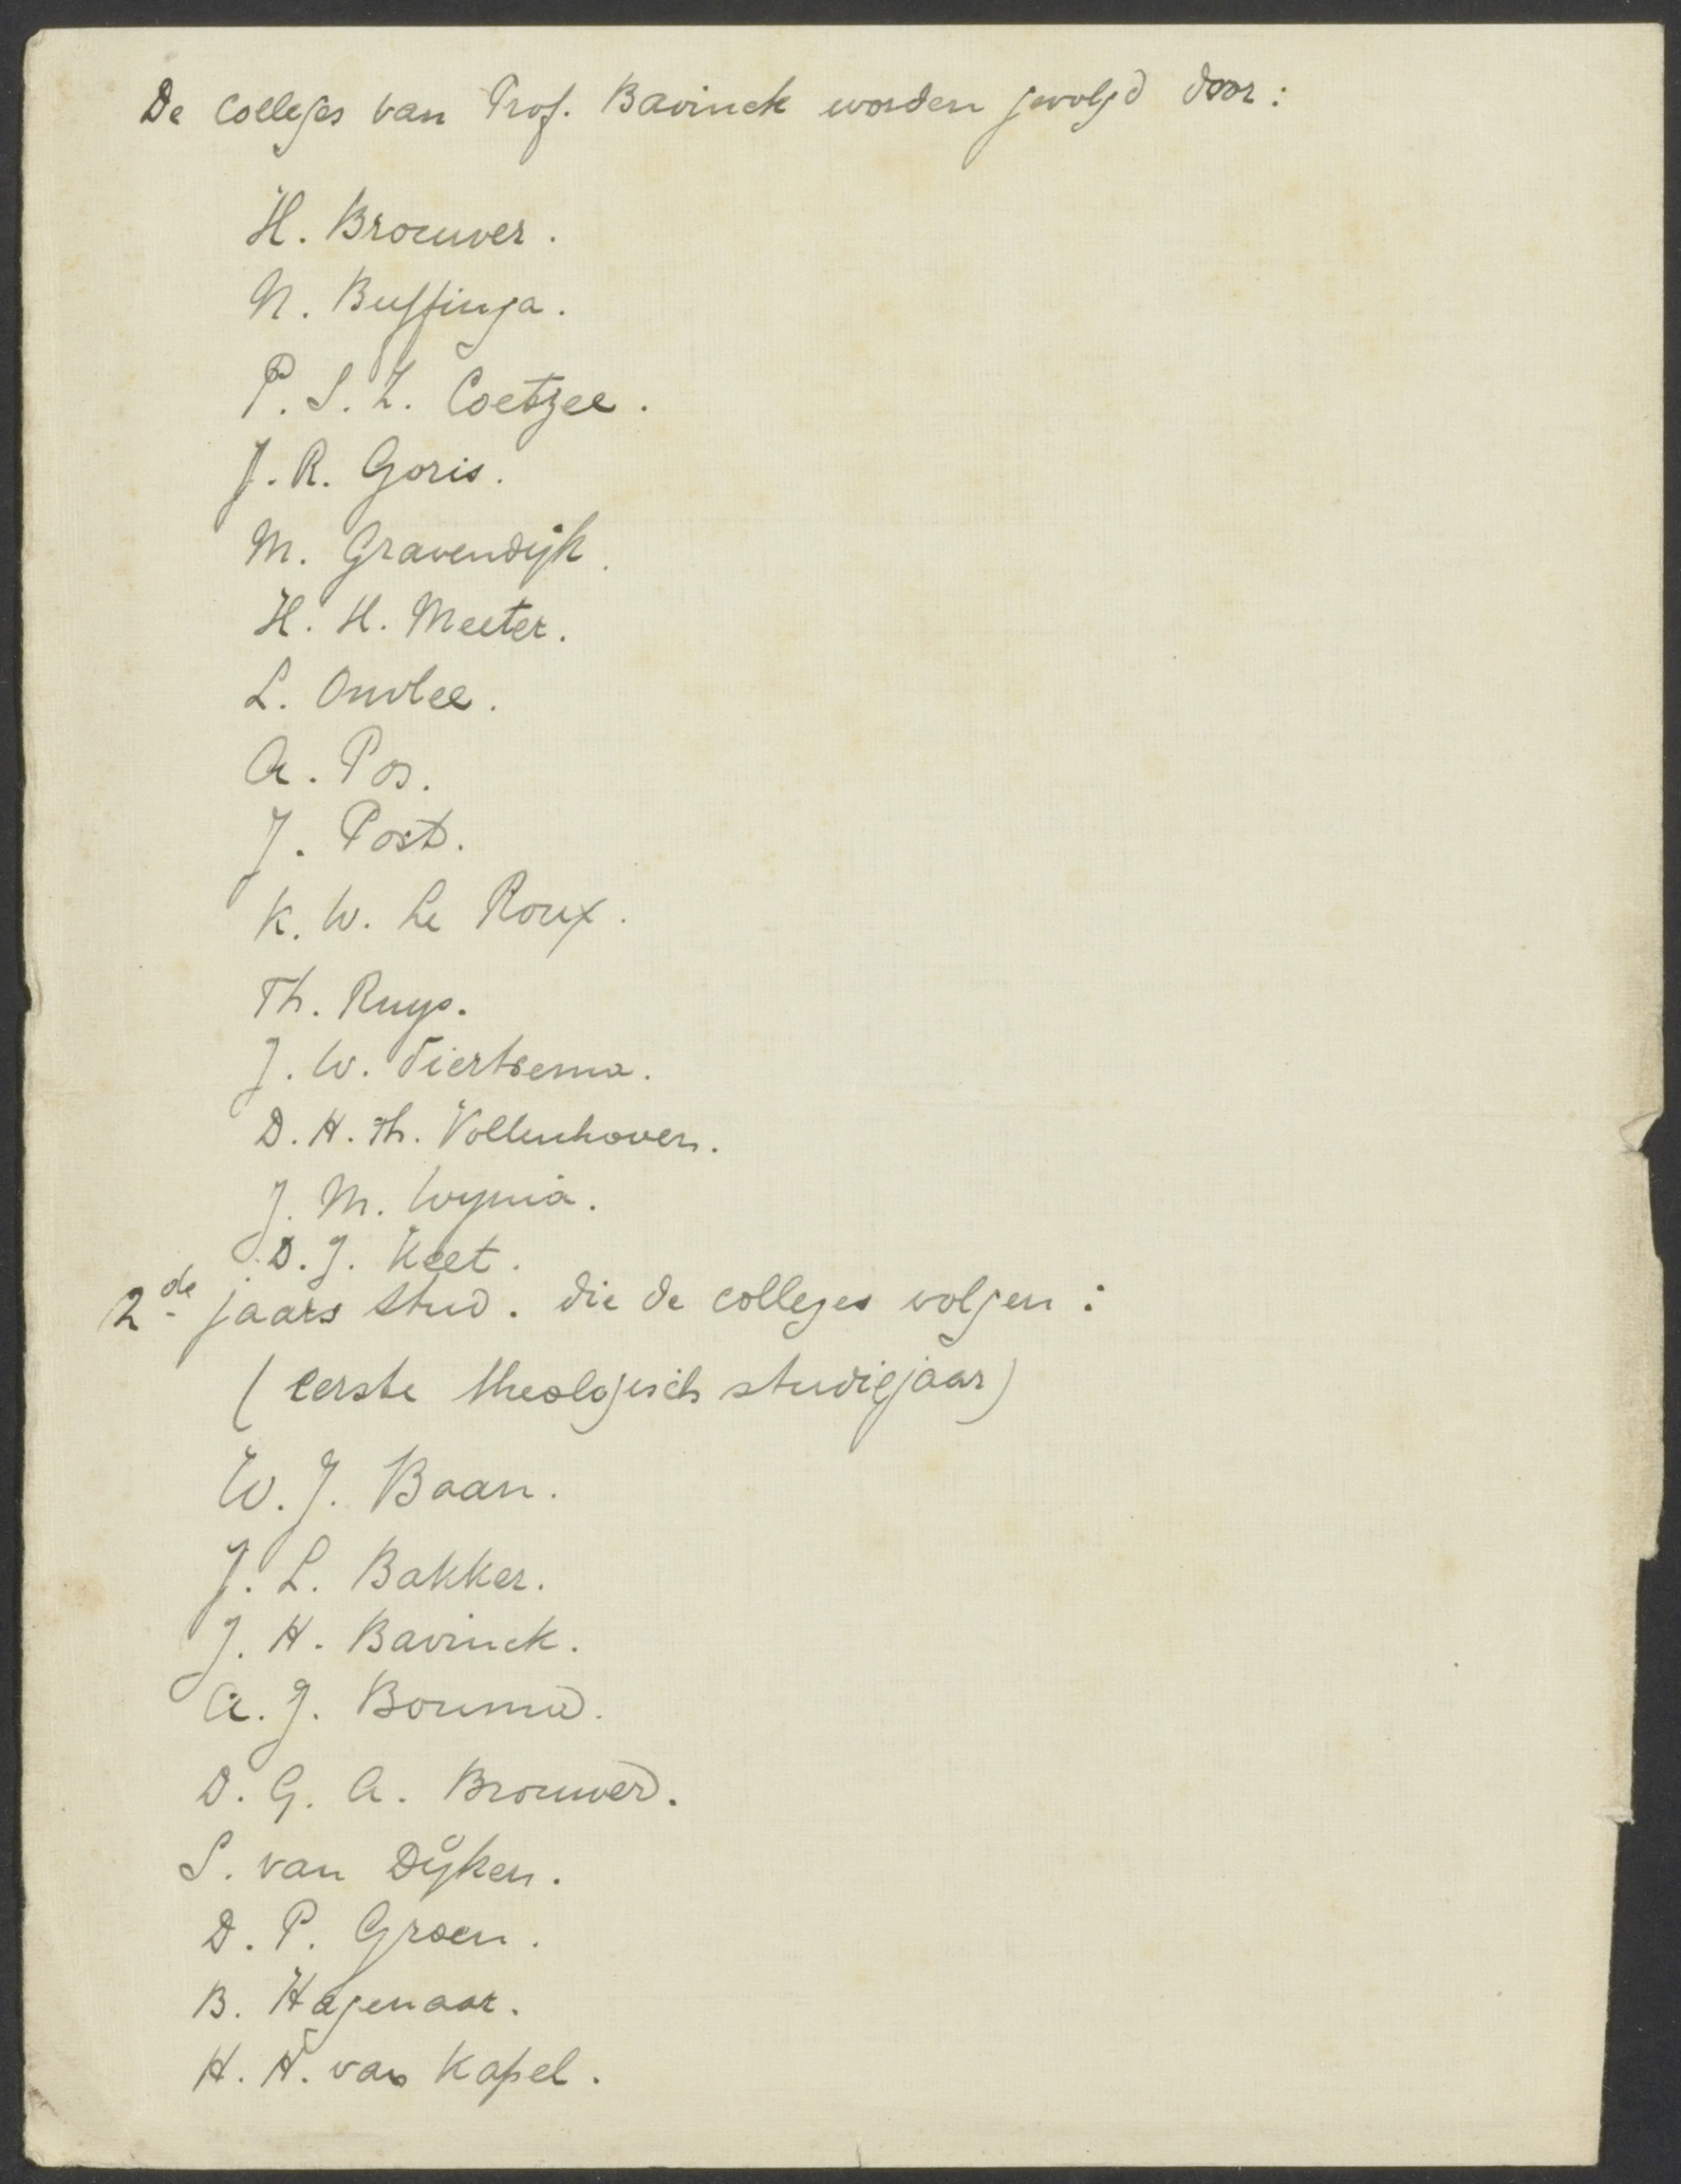 De colleges van Prof. Bavinck worden gevolgd door:
H. Brouwer.
N. Buffinga.
P. S. Z. Coetzee.
J. R. Goris.
M. Gravendijk.
H. H. Meeter.
L. Onvlee.
A. Pos.
J. Post.
K. W. Le Roux.
Th. Ruys.
J. W. Tiertsema.
D. H. Th. Vollenhoven.
J. M. Wynia.
D. J. Keet.
2de jaars stud. die de colleges volgen:
(eerste theologisch studiejaar)
W. J. Baan.
J. L. Bakker.
J. H. Bavinck.
A. J. Bouma.
D. G. A. Brouwer.
S. van Dijken.
D. P. Groen.
B. Hagenaar.
H. H. van Kapel.